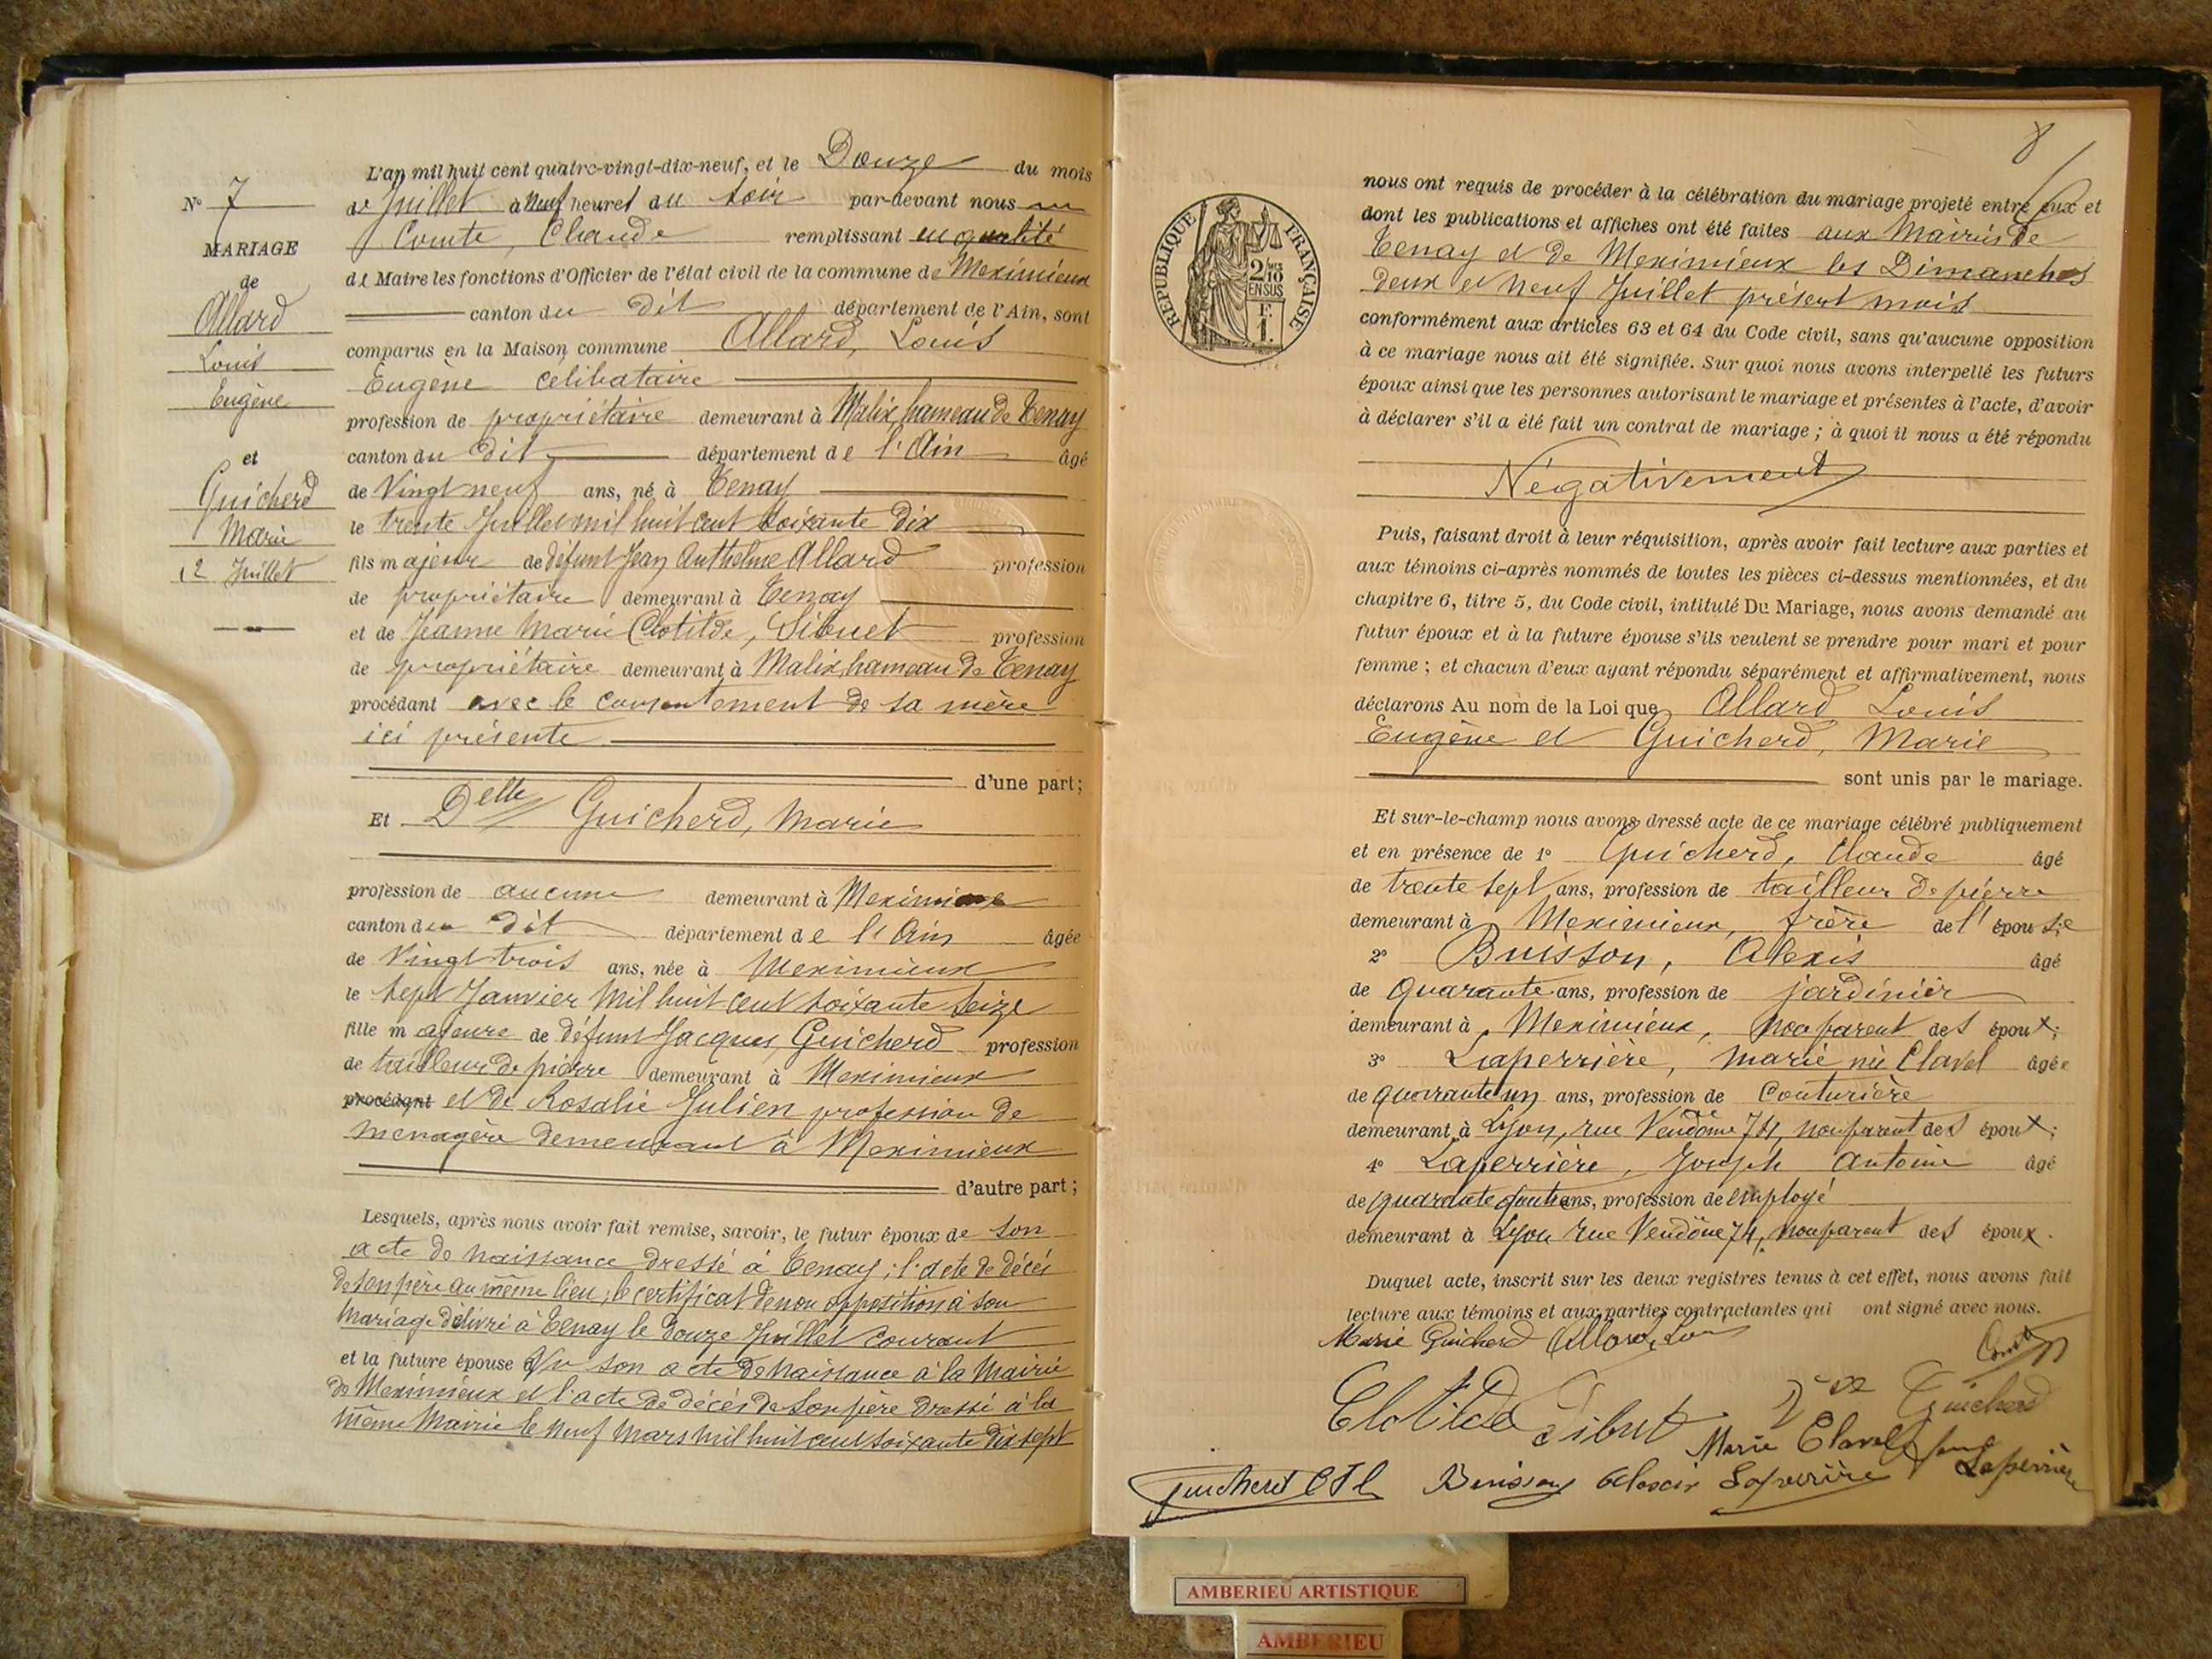 L'an mil huit cent quatre-vingt-dix-neuf, et le Douze du mois
de Juillet à neuf heures du soir par-devant nous
Comte, Claude remplissant en qualité
de Maire les fonctions d'Officier de l'état civil de la commune de Meximieux
canton du dit département de l'Ain, sont
comparus en la Maison commune Allard, Louis
Eugène celibataire
profession de propriétaire demeurant à Malix, hameau de Tenay
canton du dit département de l'Ain âgé
de Vingt neuf ans, né à Tenay
le trente Juillet mil huit cent soixante dix
fils majeur de défunt Jean Anthelme Allard profession
de propriétaire demeurant à Tenay
et de Jeanne Marie Clotilde, Sibuet profession
de propriétaire demeurant à Malix hameau de Tenay
procédant avec le consentement de sa mère
ici présente
d'une part;
Et Delle Guicherd, Marie
profession de aucune demeurant à Meximieux
canton du dit département de l'Ain âgée
de Vingt trois ans, née à Meximieux
le sept Janvier mil huit cent soixante seize
fille majeure de défunt Jacques Guicherd profession
de tailleur de pierre demeurant à Meximieux
procédant et de Rosalie Julien profession de
menagère demeurant à Meximieux
d'autre part;
Lesquels, après nous avoir fait remise, savoir, le futur époux de son
acte de naissance dressé à Tenay; l'acte de décès
de son père au même lieu; le certificat de non opposition à son
mariage délivré à Tenay le douze Juillet courant
et la future épouse Vu son acte de naissance à la Mairie
de Meximieux et l'acte de décès de son père dressé à la
même Mairie le neuf mars mil huit cent soixante dix sept
N° 7
MARIAGE
de
Allard
Louis
Eugène
et
Guicherd
Marie
12 Juillet
8
RÉPUBLIQUE FRANÇAISE
2/10 EN SUS
F. 1.
nous ont requis de procéder à la célébration du mariage projeté entre eux et
dont les publications et affiches ont été faites aux Mairies de
Tenay et de Meximieux les Dimanches
deux et neuf Juillet présent mois
conformément aux articles 63 et 64 du Code civil, sans qu'aucune opposition
à ce mariage nous ait été signifiée. Sur quoi nous avons interpellé les futurs
époux ainsi que les personnes autorisant le mariage et présentes à l'acte, d'avoir
à déclarer s'il a été fait un contrat de mariage; à quoi il nous a été répondu
Négativement
Puis, faisant droit à leur réquisition, après avoir fait lecture aux parties et
aux témoins ci-après nommés de toutes les pièces ci-dessus mentionnées, et du
chapitre 6, titre 5, du Code civil, intitulé Du Mariage, nous avons demandé au
futur époux et à la future épouse s'ils veulent se prendre pour mari et pour
femme; et chacun d'eux ayant répondu séparément et affirmativement, nous
déclarons Au nom de la Loi que Allard Louis
Eugène et Guicherd, Marie
sont unis par le mariage.
Et sur-le-champ nous avons dressé acte de ce mariage célébré publiquement
et en présence de 1° Guicherd, Claude âgé
de trente sept ans, profession de tailleur de pierre
demeurant à Meximieux, frère de l'épouse
2° Buisson, Alexis âgé
de quarante ans, profession de jardinier
demeurant à Meximieux, non parent des époux;
3° Laperrière, Marie née Clavel âgée
de quarante un ans, profession de Couturière
demeurant à Lyon, rue Vendôme 74, non parent des époux;
4° Laperrière, Joseph Antoine âgé
de quarante quatre ans, profession de employé
demeurant à Lyon rue Vendôme 74, non parent des époux.
Duquel acte, inscrit sur les deux registres tenus à cet effet, nous avons fait
lecture aux témoins et aux parties contractantes qui ont signé avec nous.
Marie Guicherd Allard
Comte
Clotilde Sibuet Guicherd
Marie Clavel Laperrière
Guicherd Buisson Alexis Laperrière
AMBERIEU ARTISTIQUE
AMBERIEU